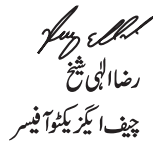 رضا الٰہی شیخ
چیف ایگزیکٹو آفیسر